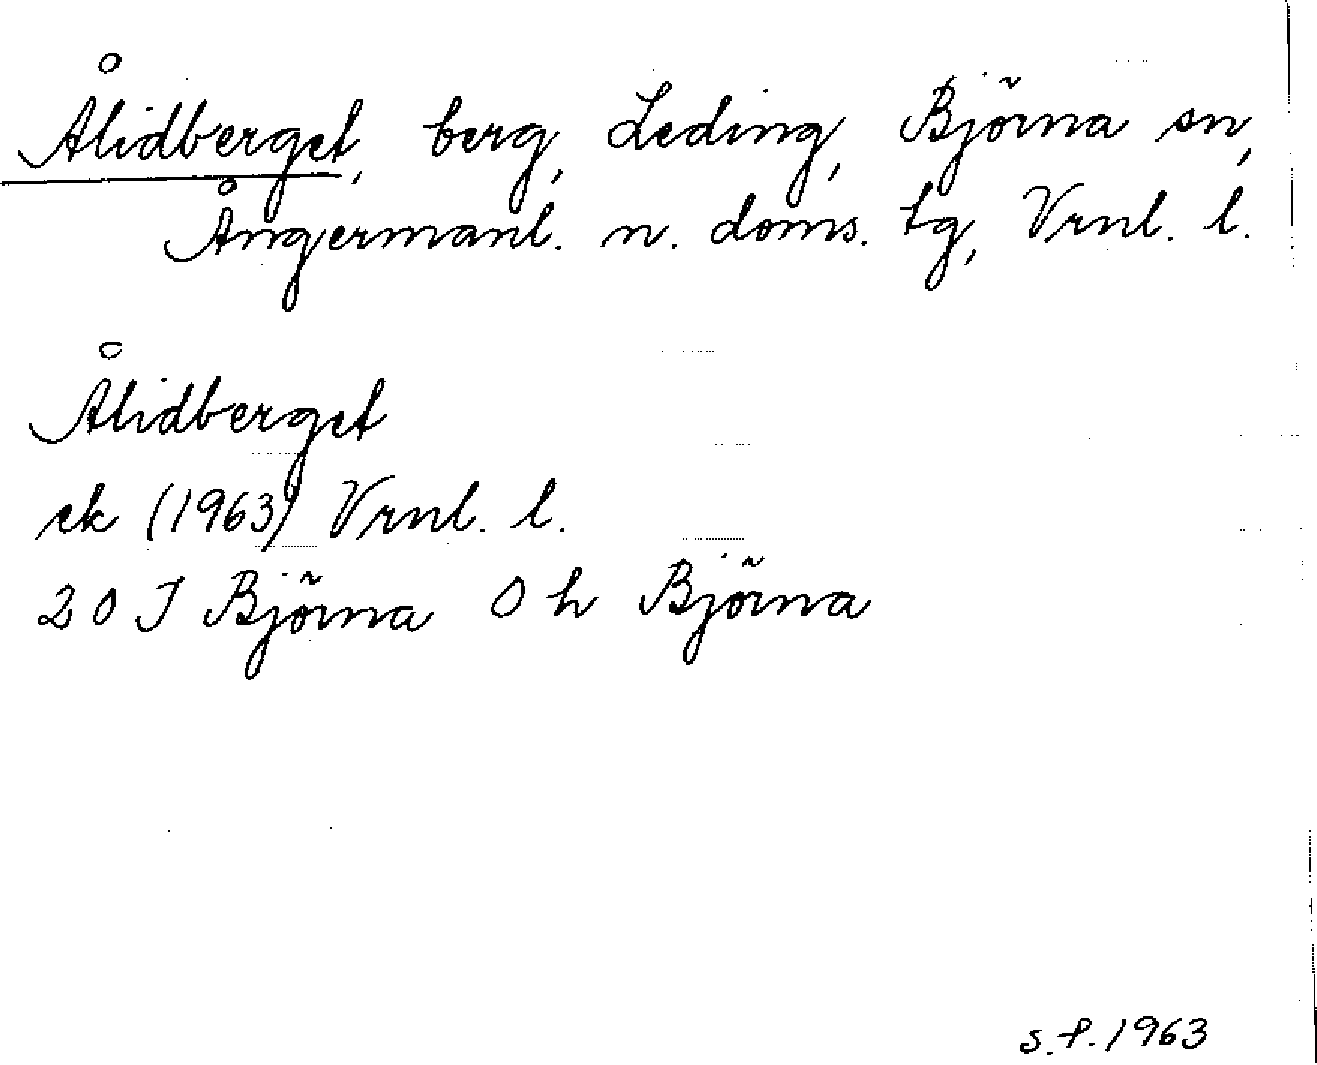 Ålidberget, berg, Leding, Björna sn,
Ångermanl. n. doms. tg, Vrnl. l.
Ålidberget
ek (1963) Vrnl. l.
20 J Björna 0 h Björna
s.f. 1963